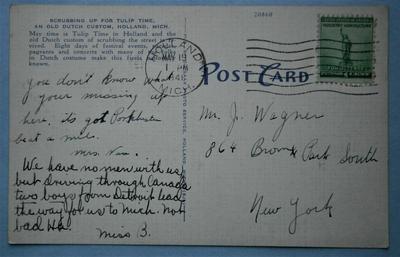 SCRUBBING UP FOR TULIP TIME,
AN OLD DUTCH CUSTOM, HOLLAND, MICH.
May time is Tulip Time in Holland and the
old Dutch custom of scrubbing the street is
vived. Eight days of festival events,
pageants and concerts with many of
in Dutch costume make this
known.
you don't know what
your missing up
here, its got
beat a mile.
Mrs.
We have no men with us,
but driving through Canada
two boys from Detroit lead
the way for us to Mich. Not
bad Ha.
Miss B.
20860
HOLLAND
MAY 19
1 PM
MICH.
POST CARD
Mr. J. Wagner
864 Bronx Park South
New York